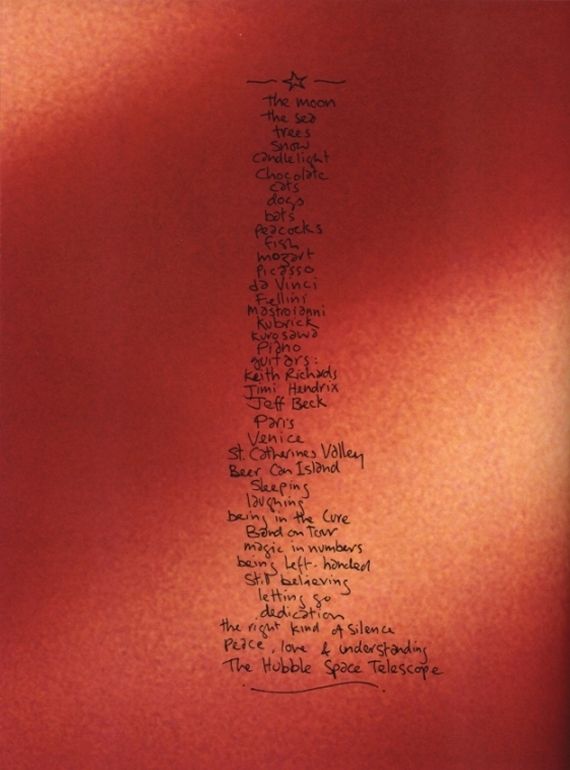 the moon
the sea
trees
snow
candlelight
chocolate
cats
dogs
bats
peacocks
fish
mozart
picasso
da Vinci
Fellini
Mastroianni
Kubrick
kurosawa
Piano
guitars:
Keith Richards
Jimi Hendrix
Jeff Beck
Paris
Venice
St. Catherines Valley
Beer Can Island
Sleeping
laughing
being in the Cure
Band on Tour
magic in numbers
being left-handed
Still believing
letting go
dedication
the right kind of silence
Peace, love & understanding
The Hubble Space Telescope